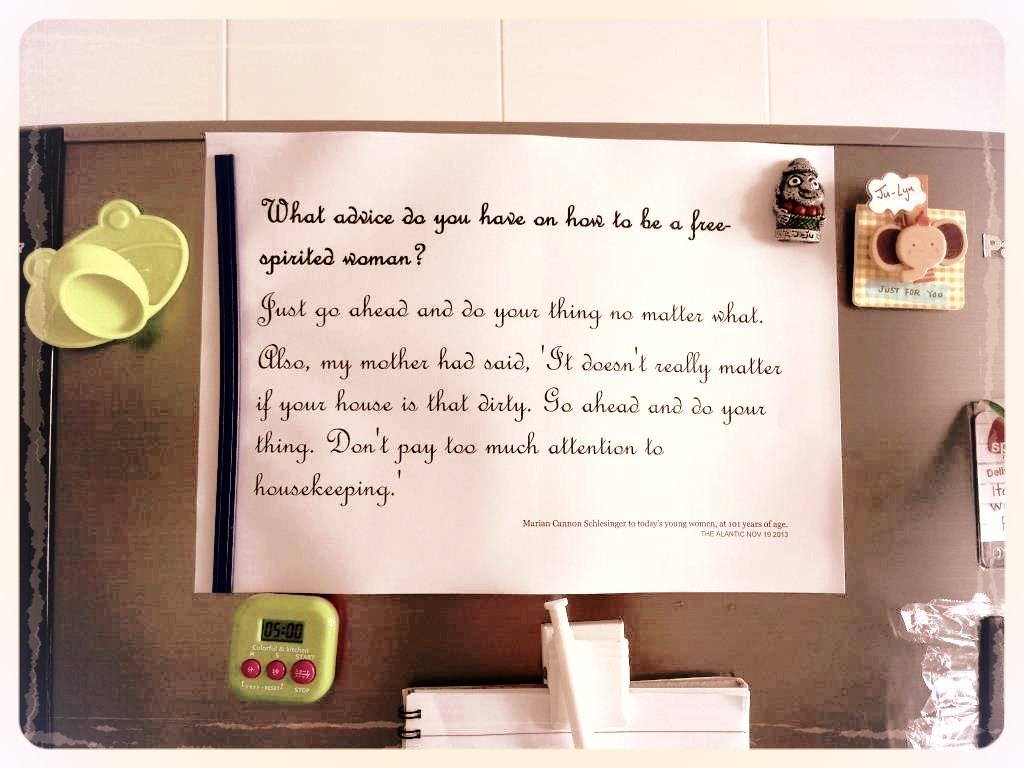 What advice do you have on how to be a free-
spirited woman?
Just go ahead and do your thing no matter what.
Also, my mother had said, 'It doesn't really matter
if your house is that dirty. Go ahead and do your
thing. Don't pay too much attention to
housekeeping.'
Marian Cannon Schlesinger to today's young women, at 101 years of age.
THE ALANTIC NOV 19 2013
JeJu
Ju-Lyn
JUST FOR YOU
05:00
Colorful & kitchen
M S START
STOP